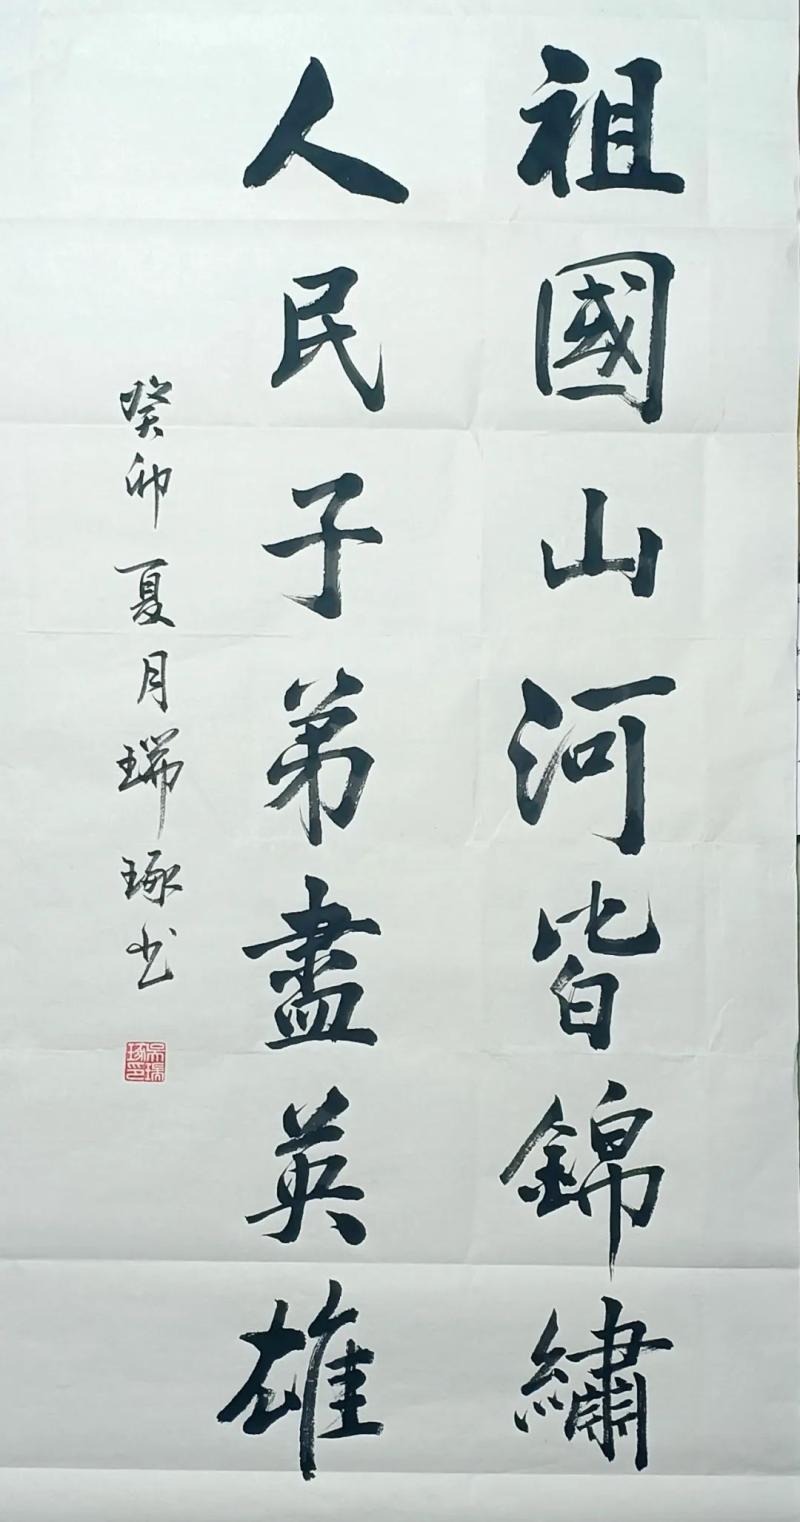 祖國山河皆錦繡
人民子弟盡英雄
癸卯夏月瑞琢书
吴瑞琢印